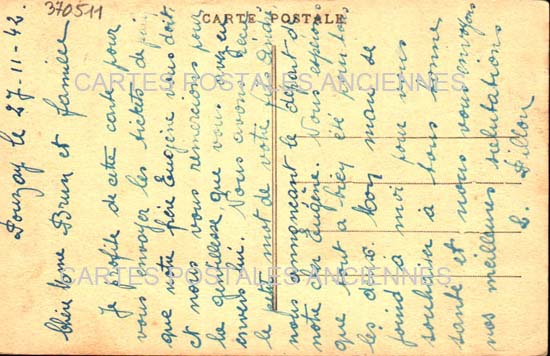 370511
CARTE POSTALE
CARTES POSTALES ANCIENNES
CARTES POSTALES ANCIENNES
Douzay le 27-11-42.
Chère Mme Brun et famille
Je profite de cette carte pour
vous envoyer les tickets de
que notre frère Eugène vous doit,
et nous vous remercions pour
la gentillesse que vous avez eu
envers lui. Nous avons reçu
le petit mot de votre
nous annoncant le départ de
notre cher Eugène. Nous espérons
que tout a bien été pour tous
les deux. Mon mari se
joind à moi pour vous
souhaiter à tous bonne
santé et nous vous envoyons
nos meilleures salutations
L. Dillon